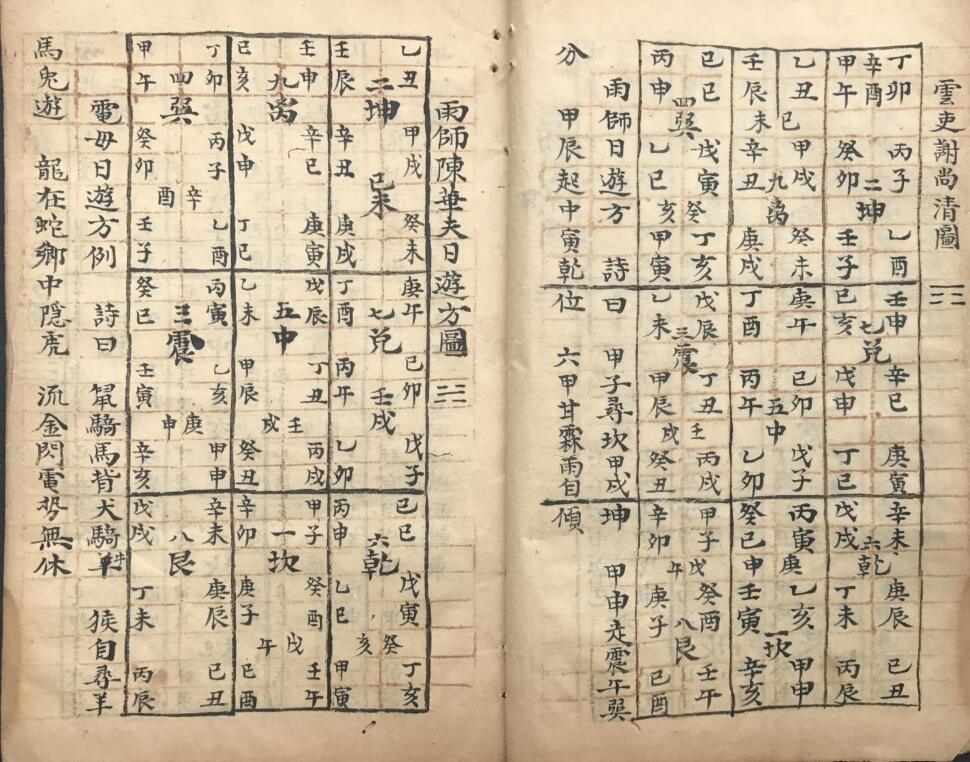 雲吏謝尚清圖 三三
丁卯 丙子 乙酉
辛酉 二坤
甲午 癸卯 壬子
乙丑 甲戌 癸未
己未 九离
壬辰 辛丑 庚戌
己巳 戊寅 丁亥
四巽 癸亥
丙申 乙巳 甲寅
壬申 辛巳 庚寅
七兌
己亥 戊申 丁巳
庚午 己卯 戊子
五中
丁酉 丙午 乙卯
戊辰 丁丑 丙戌
三震 壬戌
乙未 甲辰 癸丑
辛未 庚辰 己丑
六乾
戊戌 丁未 丙辰
丙寅 乙亥 甲申
庚申 一坎
癸巳 壬寅 辛亥
甲子 癸酉 壬午
戊午 八艮
辛卯 庚子 己酉
雨師日遊方 詩曰 甲子尋坎甲戌坤 甲申走震午巽
分 甲辰起中寅乾位 六甲甘霖雨自傾
雨師陳華夫日遊方圖 三三
乙丑 甲戌 癸未
二坤 己未
壬辰 辛丑 庚戌
壬申 辛巳 庚寅
九离
己亥 戊申 丁巳
丁卯 丙子 乙酉
四巽 辛酉
甲午 癸卯 壬子
庚午 己卯 戊子
七兌 壬戌
丁酉 丙午 乙卯
戊辰 丁丑 丙戌
五中 壬戌
乙未 甲辰 癸丑
丙寅 乙亥 甲申
三震 庚申
癸巳 壬寅 辛亥
己巳 戊寅 丁亥
六乾 癸亥
丙申 乙巳 甲寅
甲子 癸酉 壬午
一坎 戊午
辛卯 庚子 己酉
辛未 庚辰 己丑
八艮
戊戌 丁未 丙辰
電母日遊方例 詩曰 鼠騎馬背犬騎牛 猴自尋羊
馬兔遊 龍在蛇鄉中隱虎 流金閃電勢無休